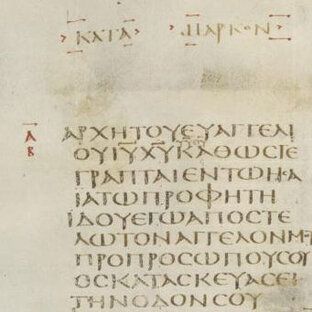 ΚΑΤΑ ΜΑΡΚΟΝ
Α ΑΡΧΗΤΟΥΕΥΑΓΓΕΛΙ
Β ΟΥΙΥΧΥΚΑΘΩCΓΕ
ΓΡΑΠΤΑΙΕΝΤΩΗCΑ
ΙΑΤΩΠΡΟΦΗΤΗ
ΙΔΟΥΕΓΩΑΠΟCΤΕ
ΛΩΤΟΝΑΓΓΕΛΟΝΜΥ
ΠΡΟΠΡΟCΩΠΟΥCΟΥ
ΟCΚΑΤΑCΚΕΥΑCΕΙ
ΤΗΝΟΔΟΝCΟΥ